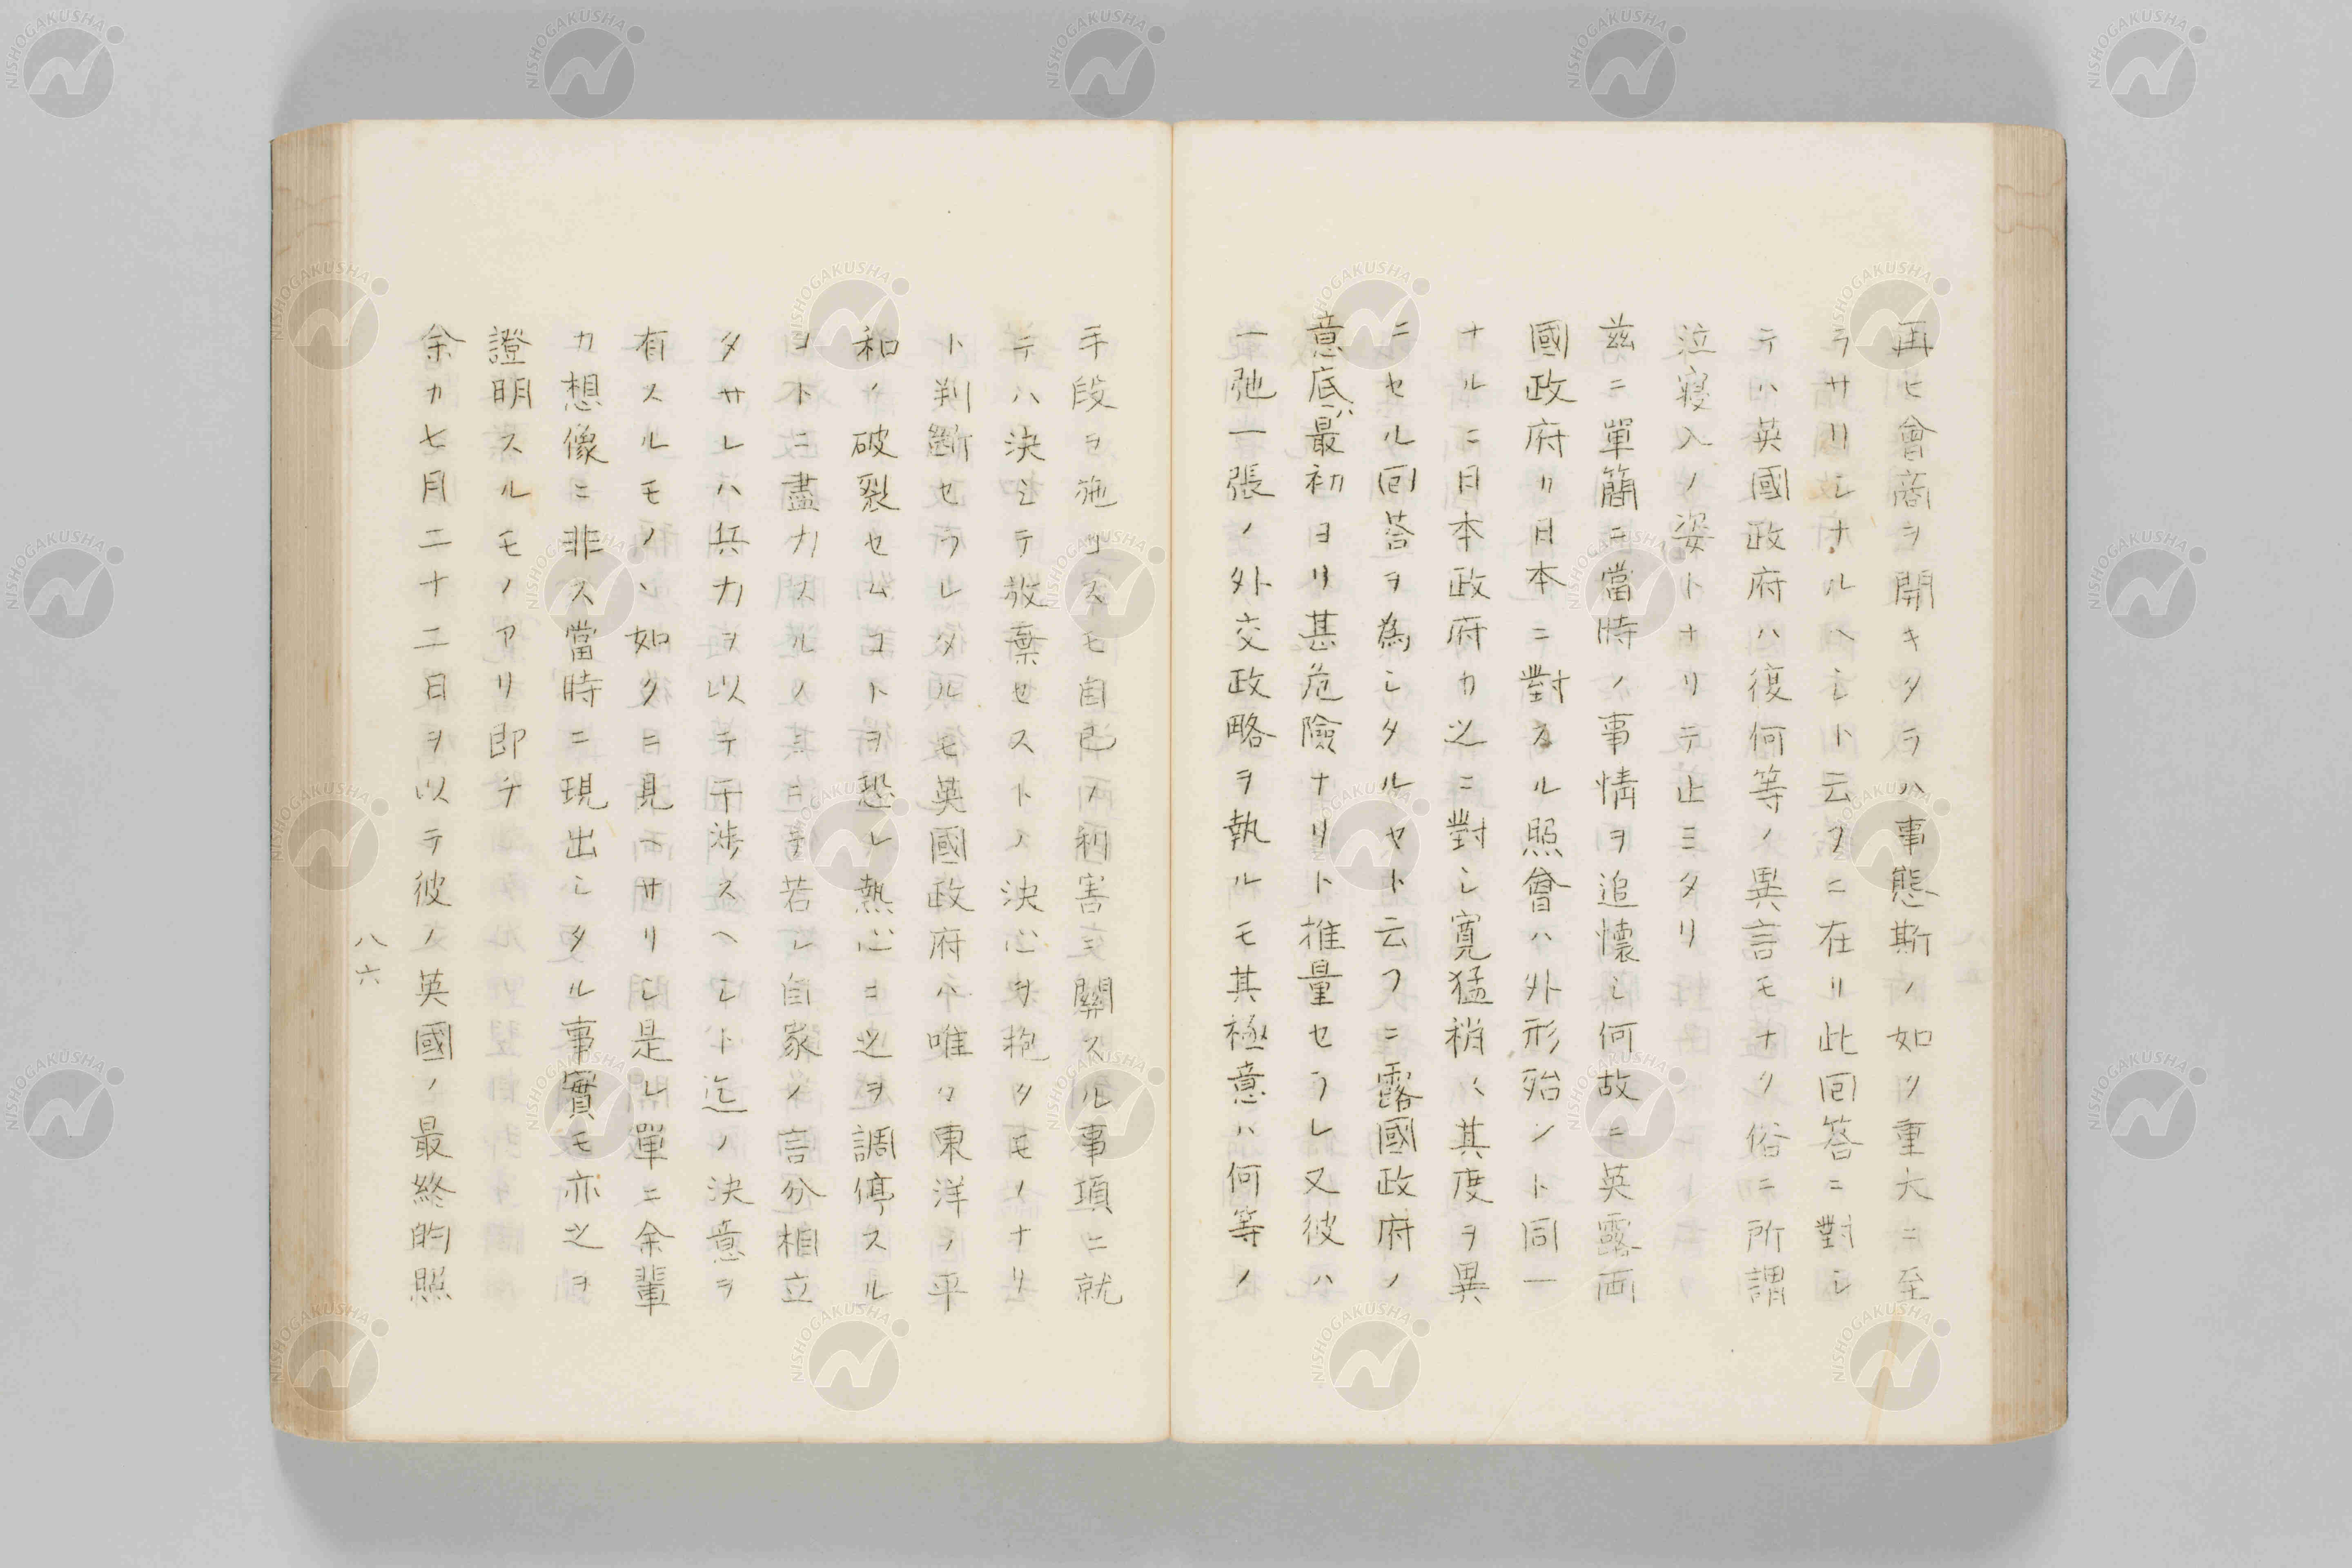 再ヒ會商ヲ開キタラハ事態斯ノ如ク重大ニ至
ラサリシナルヘシト云フニ在リ此回答ニ對シ
テハ英國政府ハ復何等ノ異言モナク俗ニ所謂
泣寝入ノ姿トナリテ止ミタリ
茲ニ單簡ニ當時ノ事情ヲ追懷シ何故ニ英露両
國政府リ日本ニ對スル照會ハ外形殆ント同一
ナルニ日本政府カ之ニ對シ寛猛稍〻其度ヲ異
ニセル回答ヲ為シタルヤト云フニ露國政府ノ
意底ハ最初ヨリ甚危險ナリト推量セラレ又彼ハ
一弛一張ノ外交政略ヲ執ルモ其極意ハ何等ノ
手段ヲ施コスモ自己ノ利害ニ關スル事項ニ就
テハ決シテ放棄セストノ決心ヲ抱クモノナリ
ト判斷セラレタルモ英國政府ハ唯ク東洋ノ平
和ノ破裂セムコトヲ恐レ熱心ニ之ヲ調停スル
ヿトニ盡力スルノ其上等若シ自家ノ言分相立
タサレハ兵力ヲ以テ干渉スヘシト迄ノ決意ヲ
有スルモノヽ如クニ見ヘサリシ是レ單ニ余輩
カ想像ニ非ス當時ニ現出シタル事實モ亦之ヲ
證明スルモノアリ即チ
余カ七月二十二日ヲ以テ彼ノ英國ノ最終的照
八六
NISHOGAKUSHA